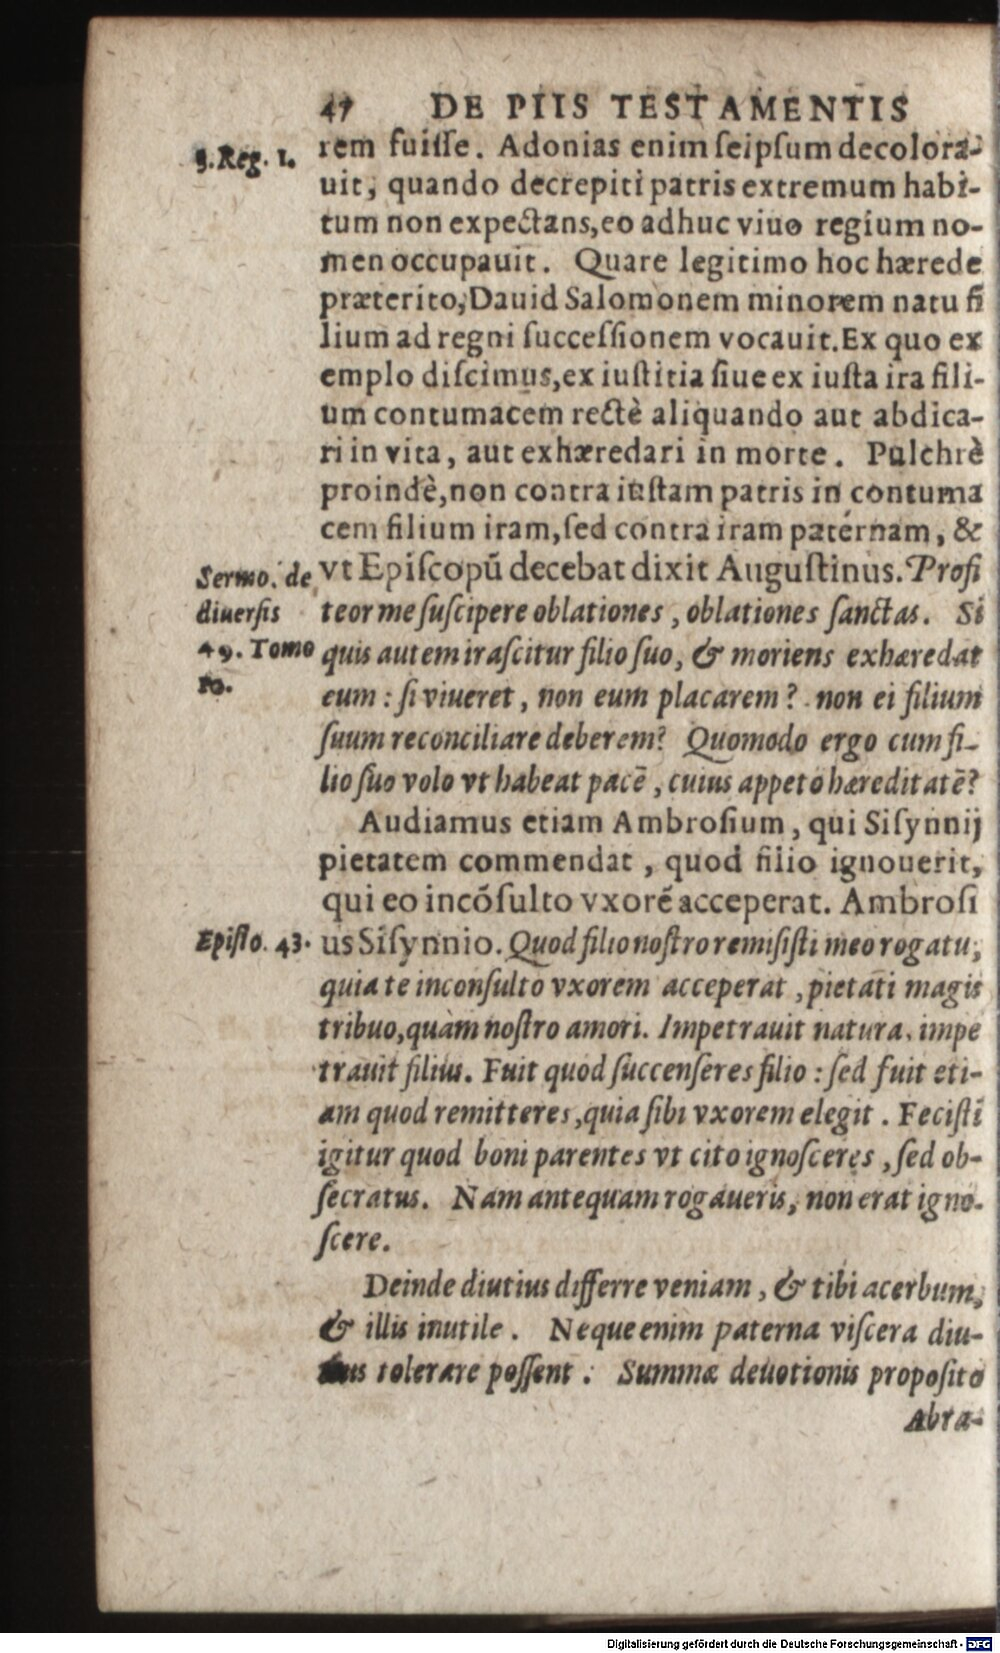 47 DE PIIS TESTAMENTIS
3. Reg. 1.
rem fuiſſe. Adonias enim ſeipſum decolora-
uit, quando decrepiti patris extremum habi-
tum non expectans, eo adhuc viuo regium no-
men occupauit. Quare legitimo hoc hærede
præterito, Dauid Salomonem minorem natu fi
lium ad regni ſucceſſionem vocauit. Ex quo ex
emplo diſcimus, ex iuſtitia ſiue ex iuſta ira fili-
um contumacem rectè aliquando aut abdica-
ri in vita, aut exhæredari in morte. Pulchrè
proindè, non contra iuſtam patris in contuma
cem filium iram, ſed contra iram patérnam, &
Sermo. de
diuerſis
49. Tomo
10.
vt Epiſcopū decebat dixit Auguſtinus. Profi
teor me ſuſcipere oblationes, oblationes ſanctas. Si
quis autem iraſcitur filio ſuo, & moriens exhæredat
eum: ſi viueret, non eum placarem? non ei filium
ſuum reconciliare deberem? Quomodo ergo cum fi-
lio ſuo volo vt habeat pacē, cuius appeto hæreditatē?
Audiamus etiam Ambroſium, qui Siſynnij
pietatem commendat, quod filio ignouerit,
qui eo incōſulto vxorē acceperat. Ambroſi
Epiſto. 43.
us Siſynnio. Quod filio noſtro remiſiſti meo rogatu,
quia te inconſulto vxorem acceperat, pietati magis
tribuo, quàm noſtro amori. Impetrauit natura, impe
trauit filius. Fuit quod ſuccenſeres filio: ſed fuit eti-
am quod remitteres, quia ſibi vxorem elegit. Feciſti
igitur quod boni parentes vt cito ignoſceres, ſed ob-
ſecratus. Nam antequam rogaueris, non erat igno-
ſcere.
Deinde diutius differre veniam, & tibi acerbum,
& illis inutile. Neque enim paterna viſcera diu-
tius tolerare poſſent: Summæ deuotionis propoſito
Abra-
Digitalisierung gefördert durch die Deutsche Forschungsgemeinschaft - DFG